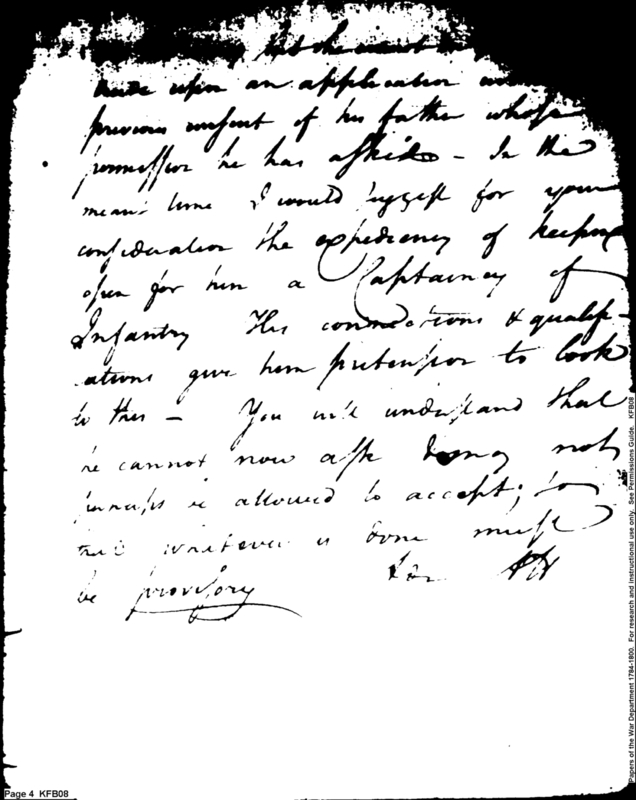 but he must
made upon an application
previous consent of his father whose
permission he has asked – In the
mean time I would suggest for your
consideration the expediency of keeping
open for him a Captaincy of
Infantry His connections & qualifi-
cations give him pretension to look
to this – You will understand that
he cannot now ask & may not
perhaps be allowed to accept; so
that whatever is done must
be provisory
AH
Page 4 KFB08
Papers of the War Department 1784-1800. For research and instructional use only. See Permissions Guide. KFB08